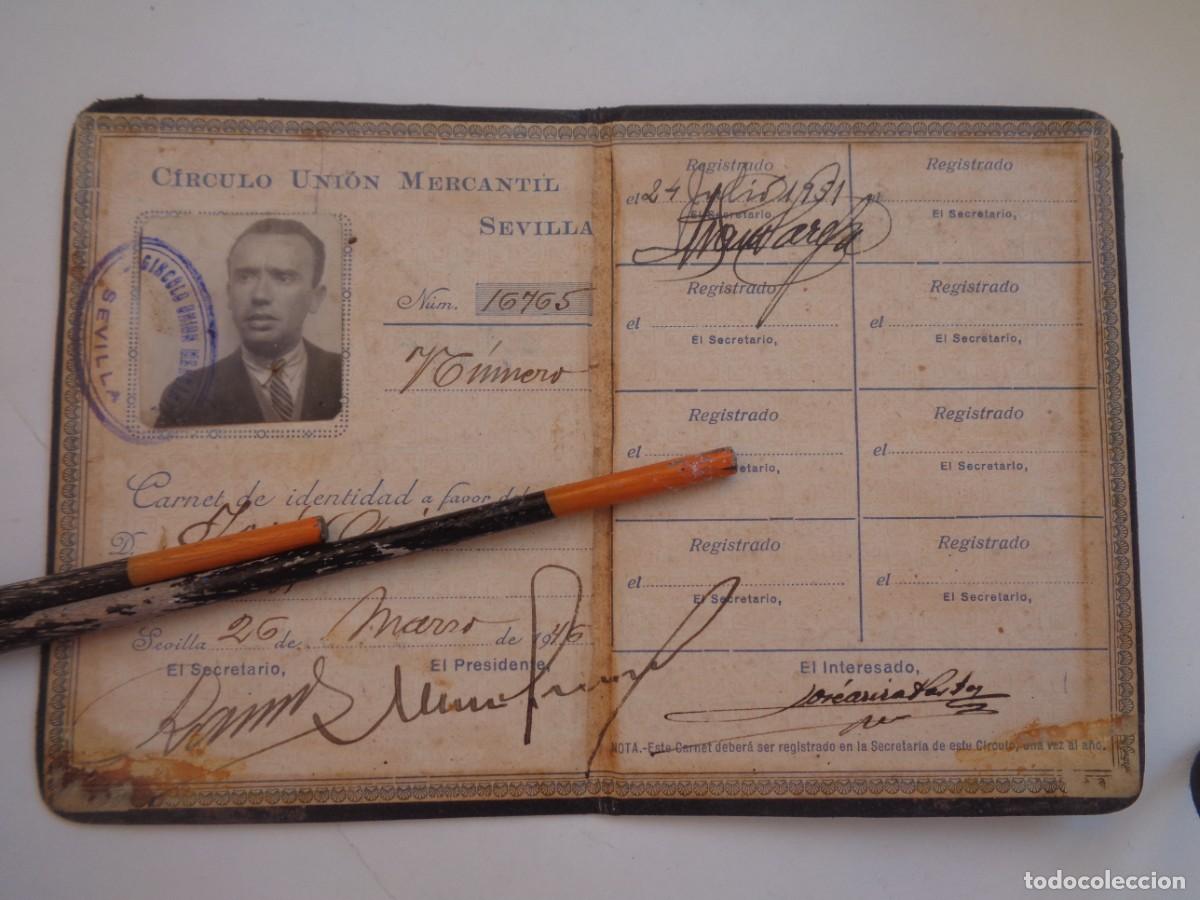 CÍRCULO UNIÓN MERCANTIL
SEVILLA
CIRCULO UNION MER
SEVILLA
Núm. 16765
Número
Carnet de identidad a favor del
D.
Sevilla 26 de Marzo de 1946
El Secretario,
El Presidente,
Registrado
el 24 Julio 1931
El Secretario,
Registrado
el
El Secretario,
Registrado
el
El Secretario,
Registrado
el
El Secretario,
Registrado
el
etario,
Registrado
el
El Secretario,
Registrado
el
El Secretario,
Registrado
el
El Secretario,
El Interesado,
NOTA.-Este Carnet deberá ser registrado en la Secretaría de este Círculo, una vez al año.
todocoleccion